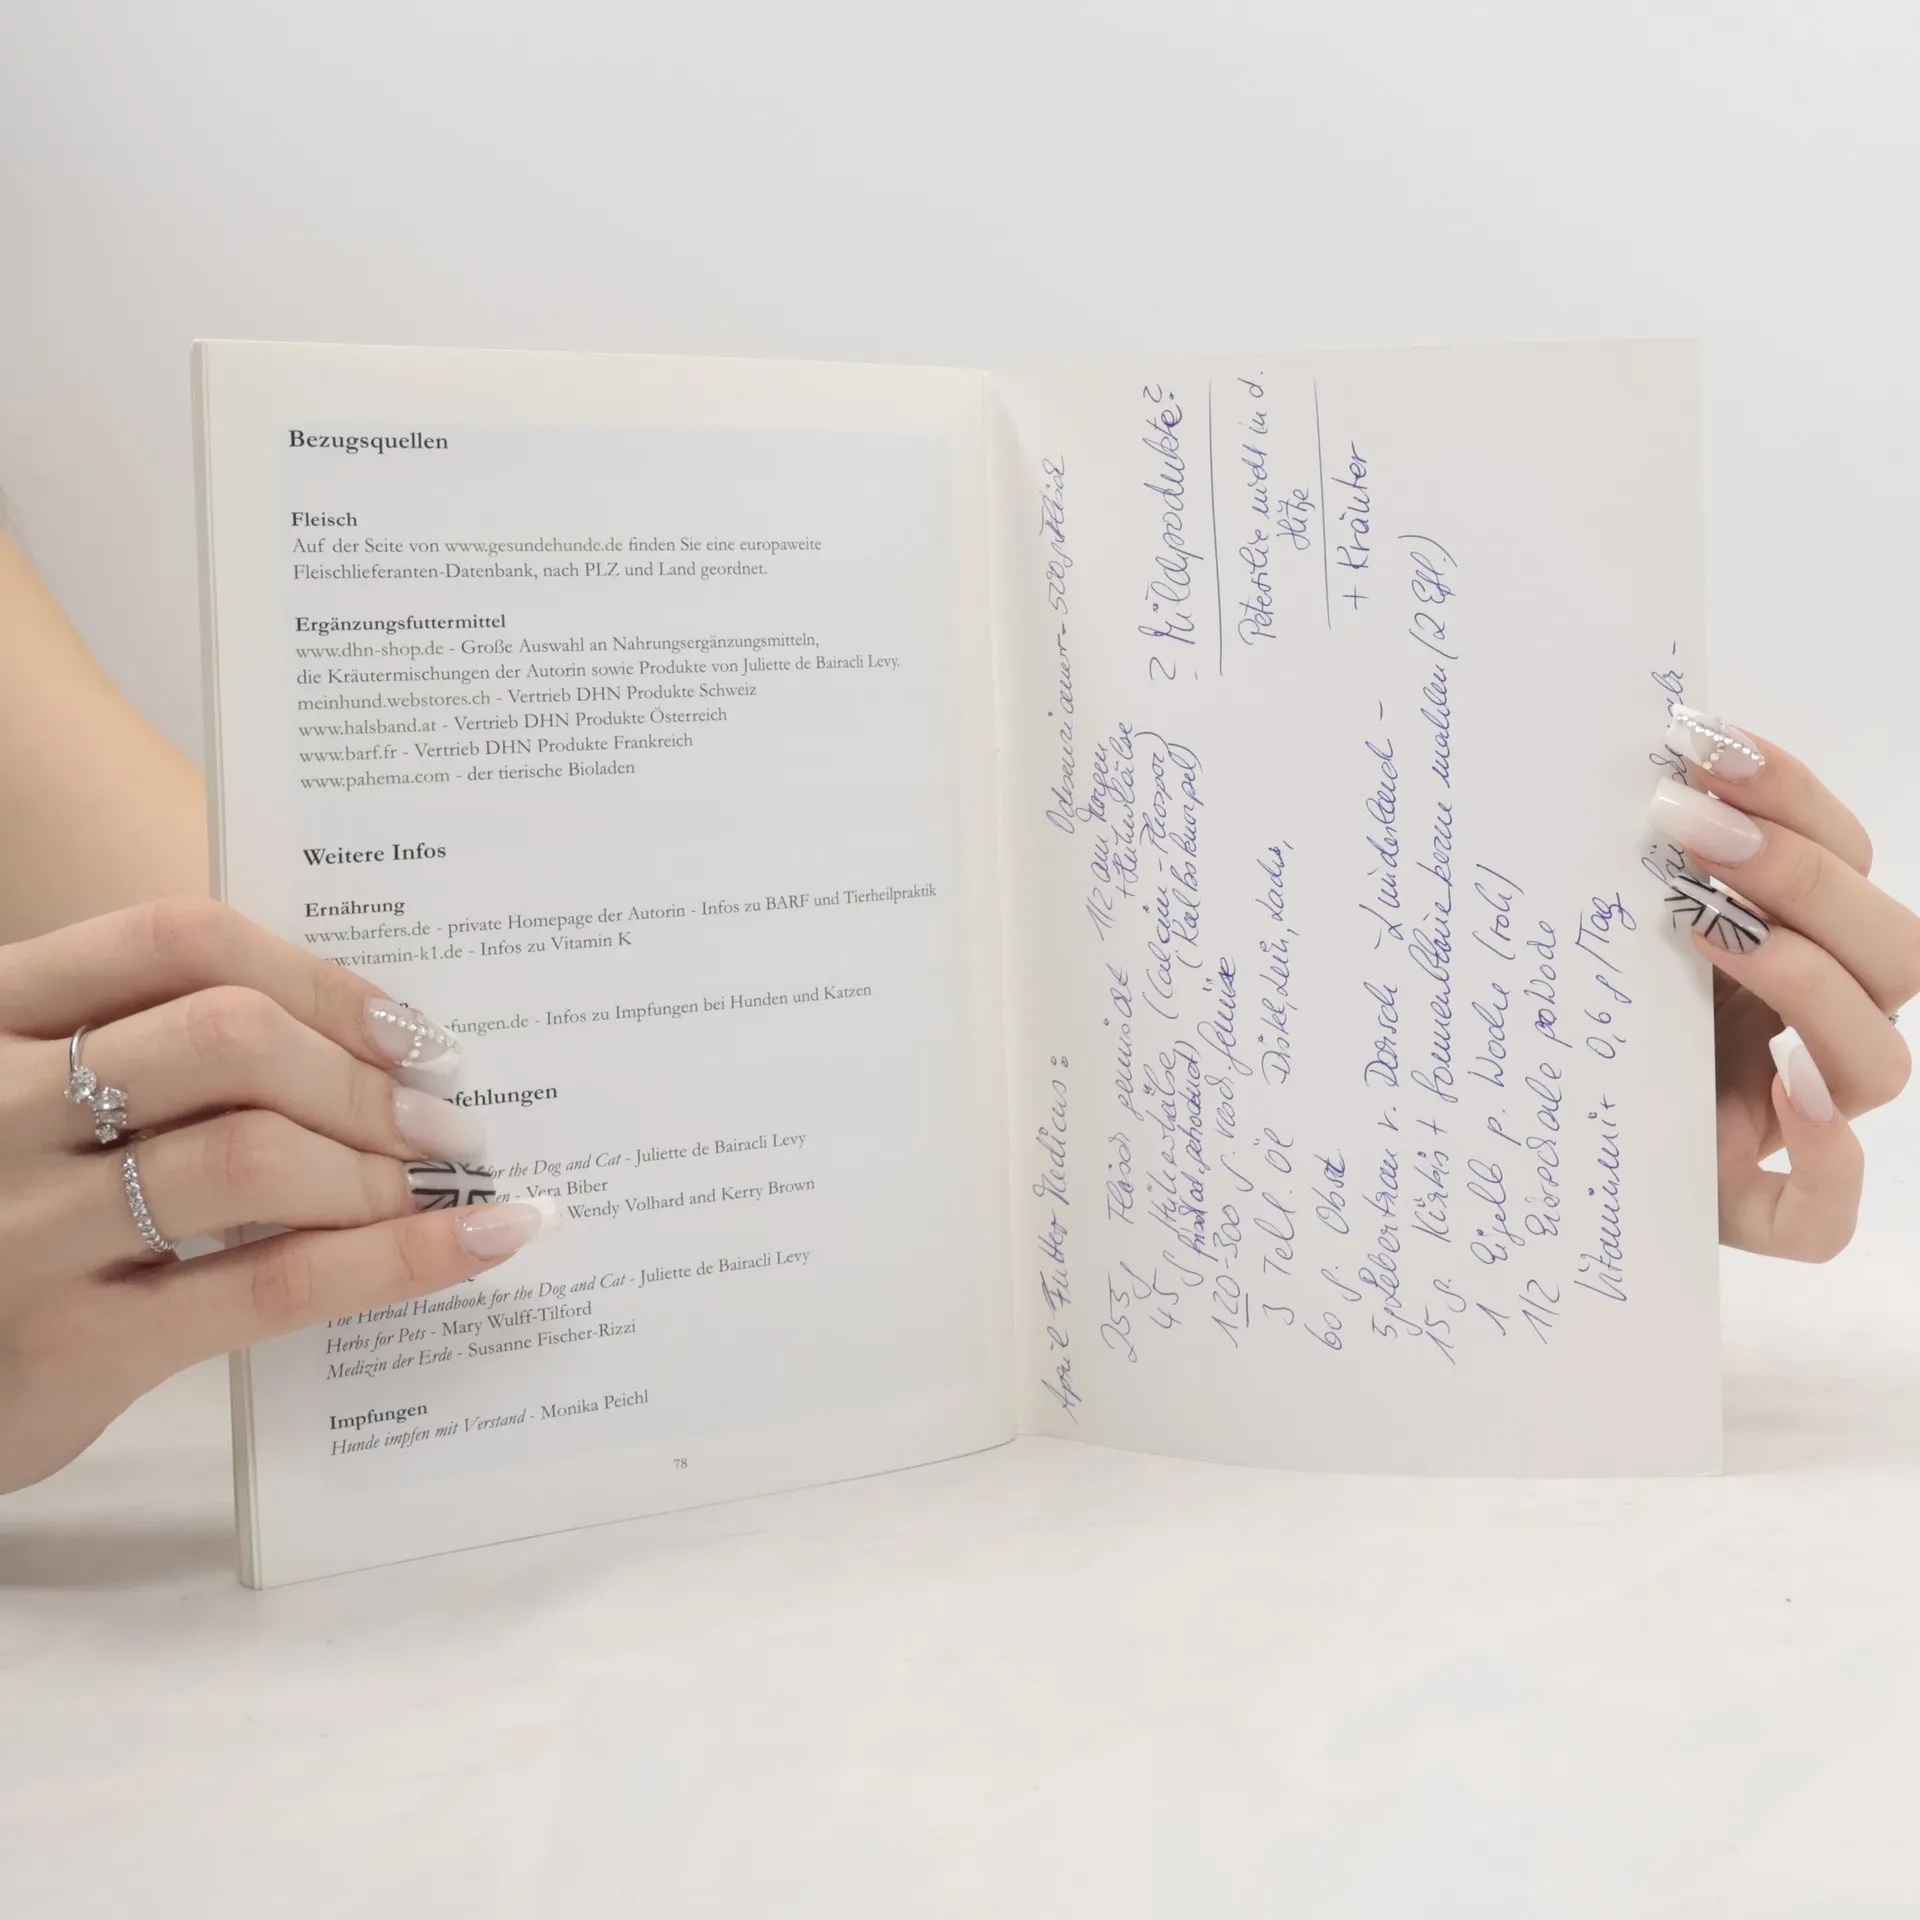 Bezugsquellen
Fleisch
Auf der Seite von www.gesundehunde.de finden Sie eine europaweite
Fleischlieferanten-Datenbank, nach PLZ und Land geordnet.
Ergänzungsfuttermittel
www.dhn-shop.de - Große Auswahl an Nahrungsergänzungsmitteln,
die Kräutermischungen der Autorin sowie Produkte von Juliette de Bairacli Levy.
meinhund.webstores.ch - Vertrieb DHN Produkte Schweiz
www.halsband.at - Vertrieb DHN Produkte Österreich
www.barf.fr - Vertrieb DHN Produkte Frankreich
www.pahema.com - der tierische Bioladen
Weitere Infos
Ernährung
www.barfers.de - private Homepage der Autorin - Infos zu BARF und Tierheilpraktik
w.vitamin-k1.de - Infos zu Vitamin K
n
fungen.de - Infos zu Impfungen bei Hunden und Katzen
fehlungen
for the Dog and Cat - Juliette de Bairacli Levy
en - Vera Biber
Wendy Volhard and Kerry Brown
The Herbal Handbook for the Dog and Cat - Juliette de Bairacli Levy
Herbs for Pets - Mary Wulff-Tilford
Medizin der Erde - Susanne Fischer-Rizzi
Impfungen
Hunde impfen mit Verstand - Monika Peichl
78
April Futter Medicus: - 500 g Fleisch
255 g Fleisch gemischt 1/2 am Morgen
+ Hühnerhälse
45 g Hühnerhälse (Calcium-Phosphor)
(Kalbsknorpel)
120-300 g Gemüse
3 Teel. Öl Distel, Lein, Lachs,
60 g Obst
5 g Lebertran v. Dorsch
15 g Kürbis + Sonnenblumenkerne mahlen (2 Eßl.)
1 Eigelb p. Woche (roh)
1/2 Eierschale pro Woche
Vitamin 0,6 g / Tag
? Milchprodukte?
Petersilie nicht in d.
Hitze
+ Kräuter